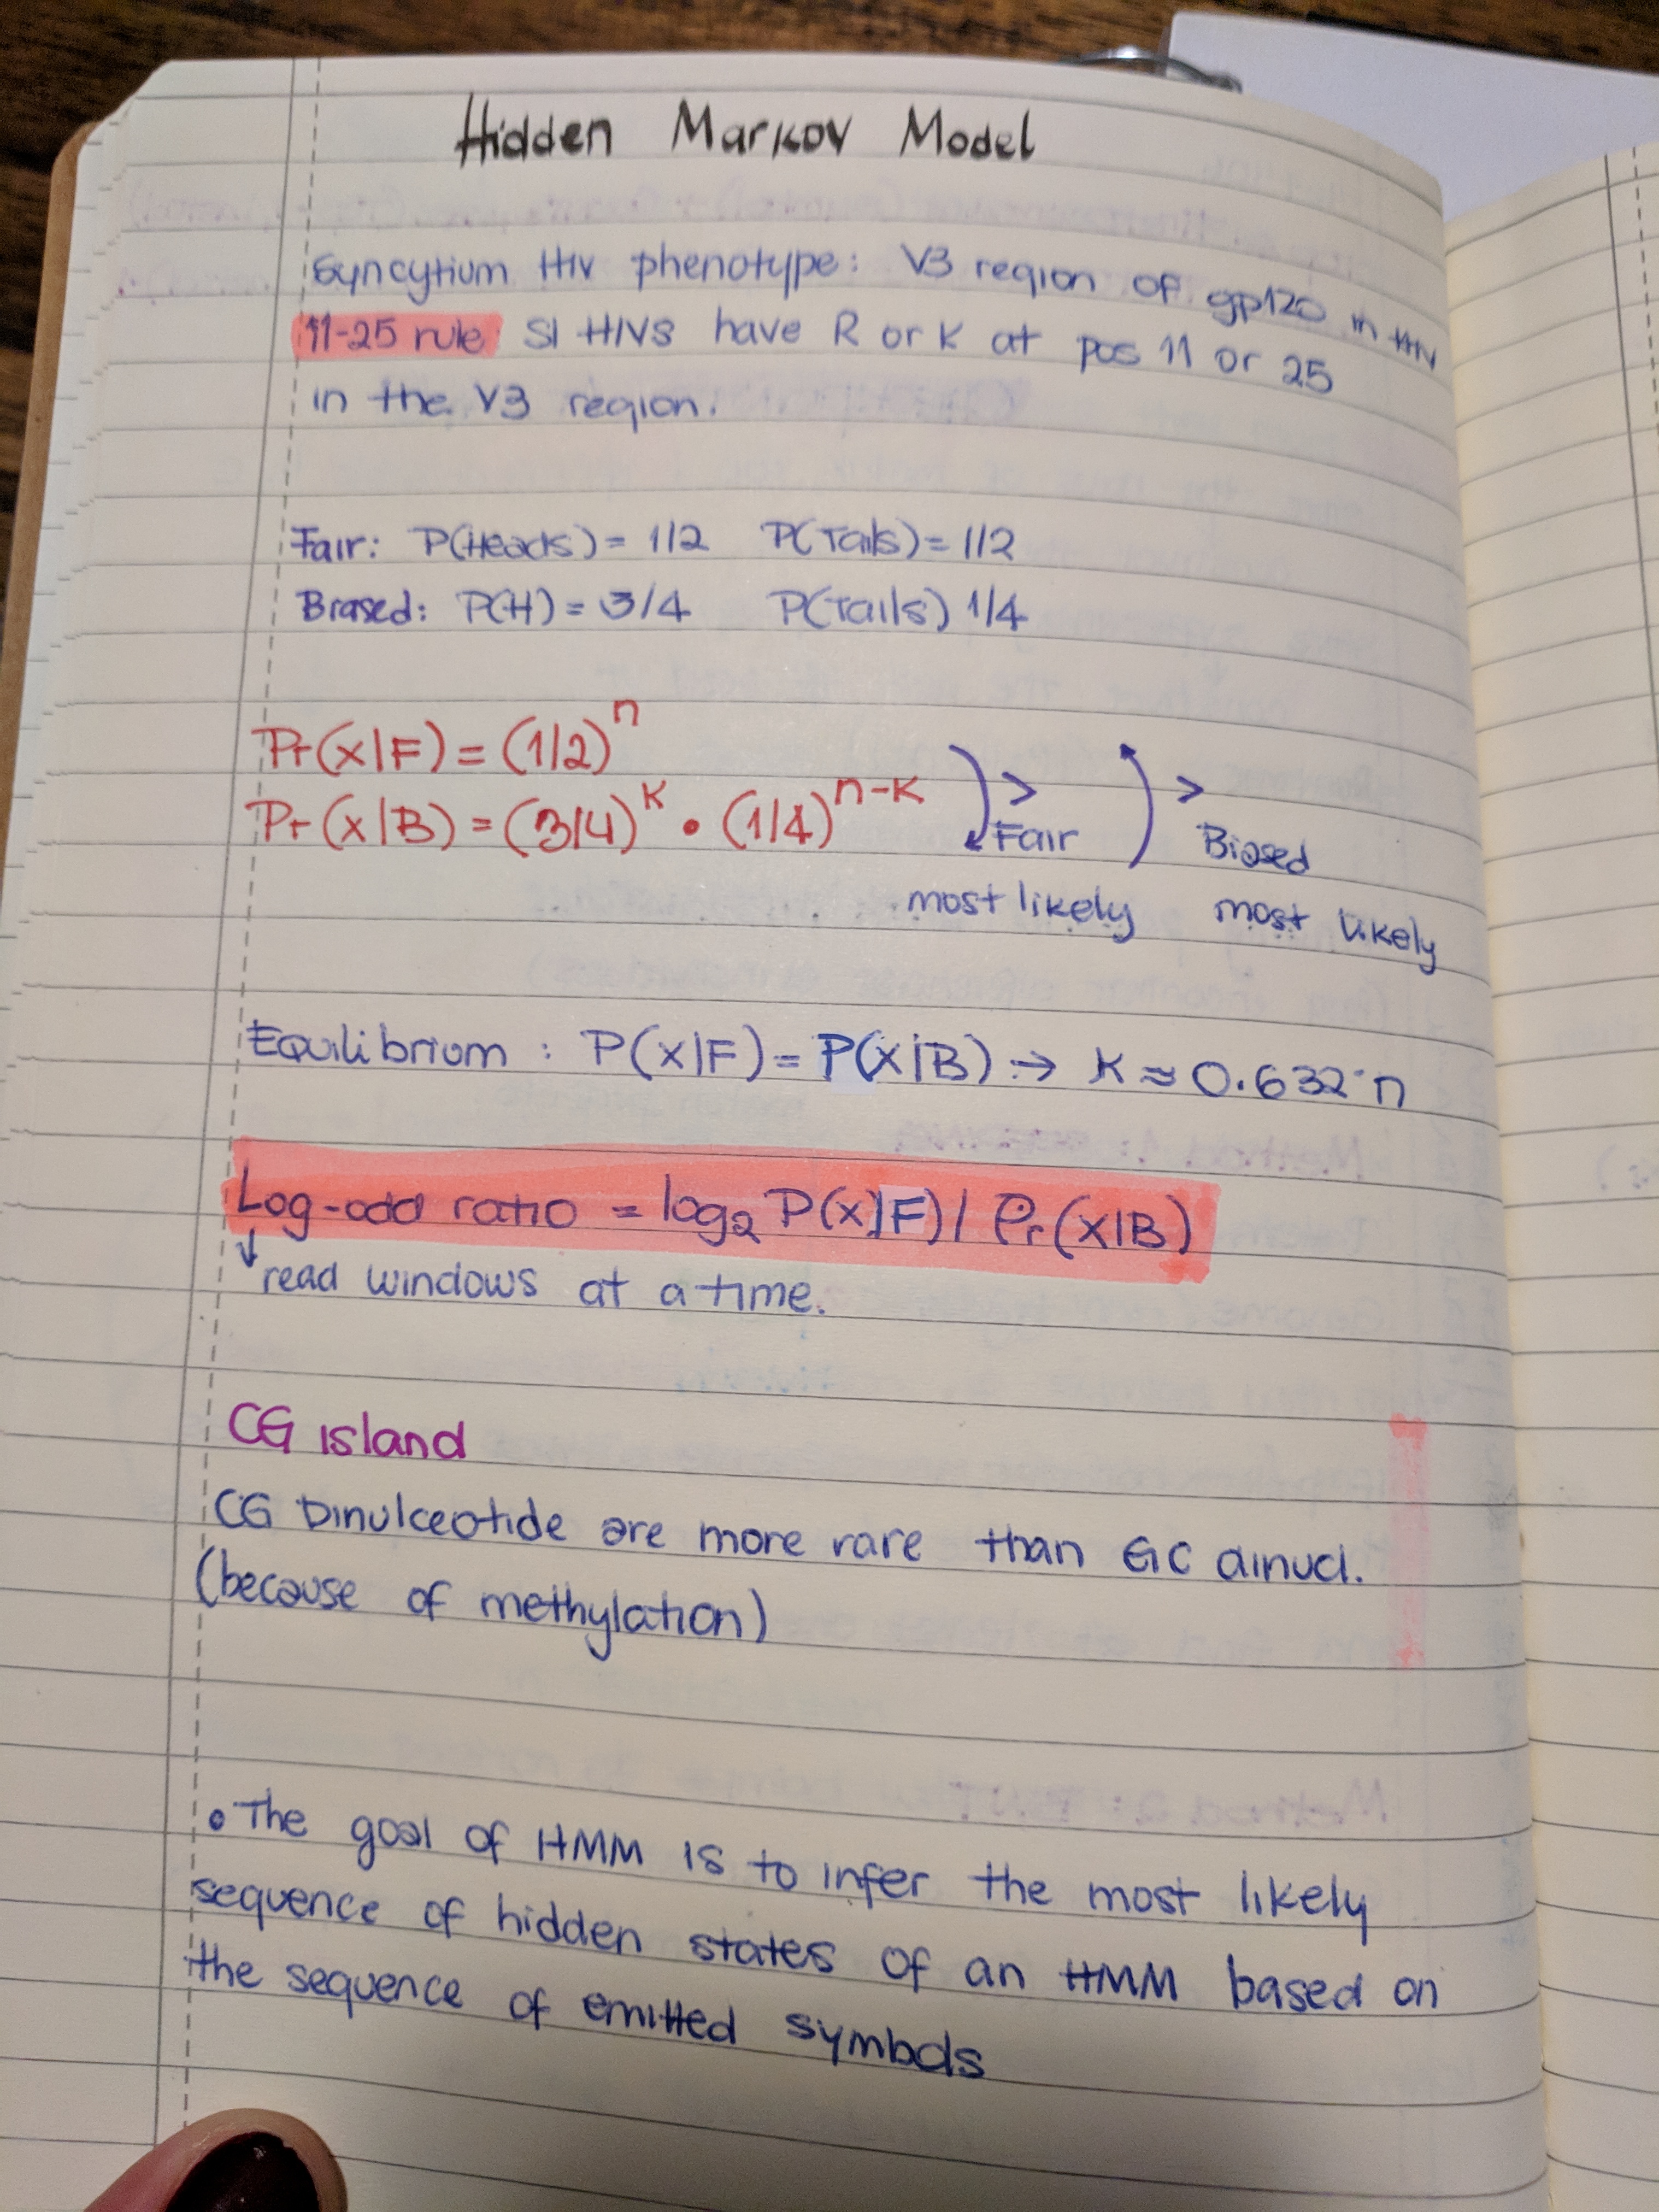 Hidden Markov Model
Syncytium HIV phenotype: V3 region of gp120 in HIV
11-25 rule SI HIVs have R or K at pos 11 or 25
in the V3 region.
Fair: P(Heads) = 1/2 P(Tails) = 1/2
Biased: P(H) = 3/4 P(Tails) 1/4
Pr(x|F) = (1/2)^n
Pr(x|B) = (3/4)^k • (1/4)^n-k
> Fair most likely
> Biased most likely
Equilibrium : P(x|F) = P(x|B) → K ≈ 0.632·n
Log-odd ratio = log₂ P(x|F) / Pr(x|B)
↓ read windows at a time.
CG island
CG Dinulceotide are more rare than GC dinucl.
(because of methylation)
• The goal of HMM is to infer the most likely
sequence of hidden states of an HMM based on
the sequence of emitted symbols